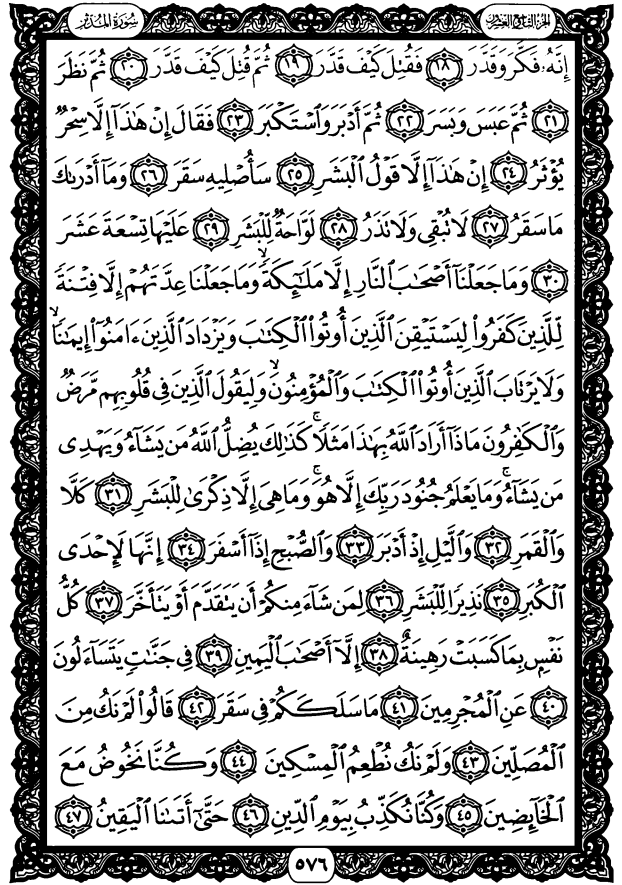 سُورَةُ الْمُدَّثِّرِ
الجُزْءُ التَّاسِعُ وَالعِشْرُونَ
إِنَّهُۥ فَكَّرَ وَقَدَّرَ ١٨ فَقُتِلَ كَيْفَ قَدَّرَ ١٩ ثُمَّ قُتِلَ كَيْفَ قَدَّرَ ٢٠ ثُمَّ نَظَرَ
٢١ ثُمَّ عَبَسَ وَبَسَرَ ٢٢ ثُمَّ أَدْبَرَ وَٱسْتَكْبَرَ ٢٣ فَقَالَ إِنْ هَٰذَآ إِلَّا سِحْرٌ
يُؤْثَرُ ٢٤ إِنْ هَٰذَآ إِلَّا قَوْلُ ٱلْبَشَرِ ٢٥ سَأُصْلِيهِ سَقَرَ ٢٦ وَمَآ أَدْرَىٰكَ
مَا سَقَرُ ٢٧ لَا تُبْقِى وَلَا تَذَرُ ٢٨ لَوَّاحَةٌ لِّلْبَشَرِ ٢٩ عَلَيْهَا تِسْعَةَ عَشَرَ
٣٠ وَمَا جَعَلْنَآ أَصْحَٰبَ ٱلنَّارِ إِلَّا مَلَٰٓئِكَةً ۙ وَمَا جَعَلْنَا عِدَّتَهُمْ إِلَّا فِتْنَةً
لِّلَّذِينَ كَفَرُوا۟ لِيَسْتَيْقِنَ ٱلَّذِينَ أُوتُوا۟ ٱلْكِتَٰبَ وَيَزْدَادَ ٱلَّذِينَ ءَامَنُوٓا۟ إِيمَٰنًا ۙ
وَلَا يَرْتَابَ ٱلَّذِينَ أُوتُوا۟ ٱلْكِتَٰبَ وَٱلْمُؤْمِنُونَ ۙ وَلِيَقُولَ ٱلَّذِينَ فِى قُلُوبِهِم مَّرَضٌ
وَٱلْكَٰفِرُونَ مَاذَآ أَرَادَ ٱللَّهُ بِهَٰذَا مَثَلًا ۚ كَذَٰلِكَ يُضِلُّ ٱللَّهُ مَن يَشَآءُ وَيَهْدِى
مَن يَشَآءُ ۚ وَمَا يَعْلَمُ جُنُودَ رَبِّكَ إِلَّا هُوَ ۚ وَمَا هِىَ إِلَّا ذِكْرَىٰ لِلْبَشَرِ ٣١ كَلَّا
وَٱلْقَمَرِ ٣٢ وَٱلَّيْلِ إِذْ أَدْبَرَ ٣٣ وَٱلصُّبْحِ إِذَآ أَسْفَرَ ٣٤ إِنَّهَا لَإِحْدَى
ٱلْكُبَرِ ٣٥ نَذِيرًا لِّلْبَشَرِ ٣٦ لِمَن شَآءَ مِنكُمْ أَن يَتَقَدَّمَ أَوْ يَتَأَخَّرَ ٣٧ كُلُّ
نَفْسٍۭ بِمَا كَسَبَتْ رَهِينَةٌ ٣٨ إِلَّآ أَصْحَٰبَ ٱلْيَمِينِ ٣٩ فِى جَنَّٰتٍ يَتَسَآءَلُونَ
٤٠ عَنِ ٱلْمُجْرِمِينَ ٤١ مَا سَلَكَكُمْ فِى سَقَرَ ٤٢ قَالُوا۟ لَمْ نَكُ مِنَ
ٱلْمُصَلِّينَ ٤٣ وَلَمْ نَكُ نُطْعِمُ ٱلْمِسْكِينَ ٤٤ وَكُنَّا نَخُوضُ مَعَ
ٱلْخَآئِضِينَ ٤٥ وَكُنَّا نُكَذِّبُ بِيَوْمِ ٱلدِّينِ ٤٦ حَتَّىٰٓ أَتَىٰنَا ٱلْيَقِينُ ٤٧
٥٧٦